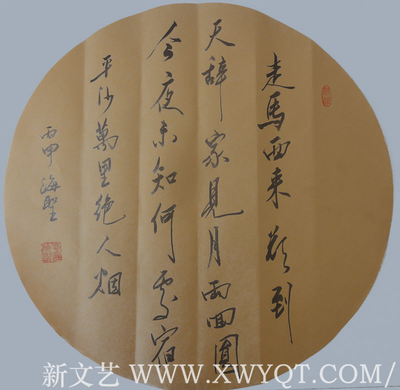 走馬西来欲到
天辞家見月两回圓
今夜未知何處宿
平沙萬里绝人烟
丙申海聖
新文艺 WWW.XWYQT.COM/